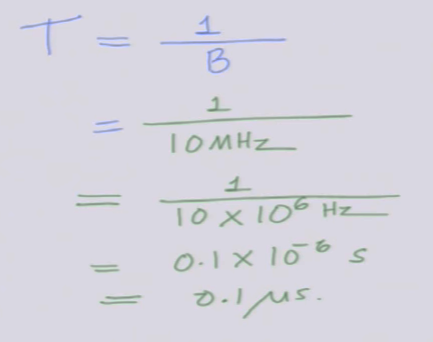 T = 1/B
= 1/10MHz
= 1/10 × 10⁶ Hz
= 0.1 × 10⁻⁶ s
= 0.1 μs.